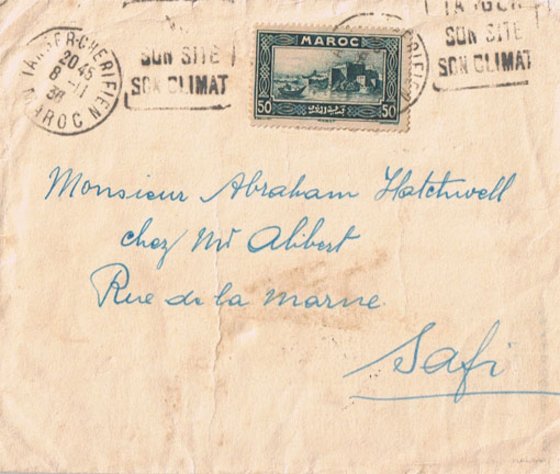 TANGER-CHERIFIEN
20 45
8 -11
38
MAROC
SON SITE
SON CLIMAT
MAROC
50 50
TANGER
SON SITE
SON CLIMAT
Monsieur Abraham Hatchwell
chez Mr Alibert
Rue de la Marne
Safi